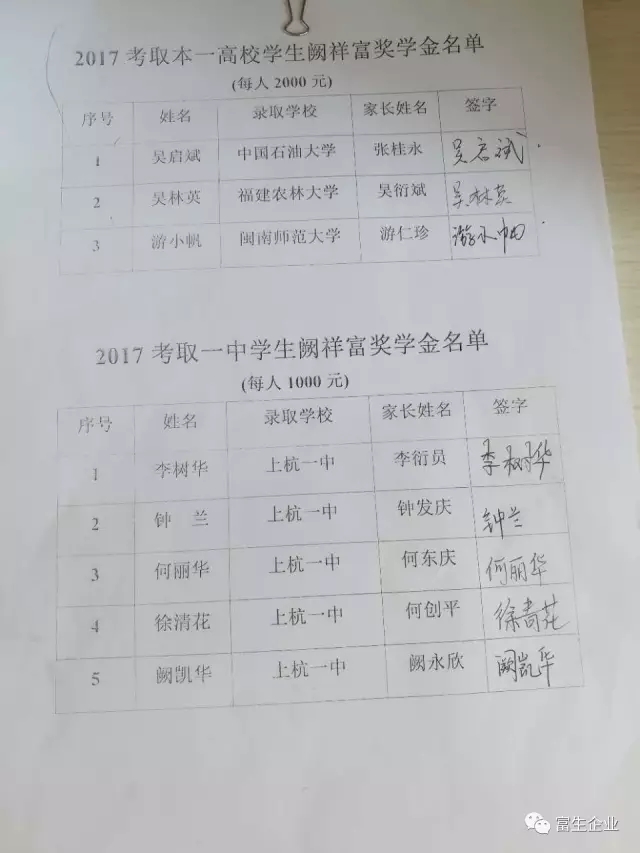 2017 考取本一高校学生阙祥富奖学金名单
(每人 2000 元)
序号 姓名 录取学校 家长姓名 签字
1 吴启斌 中国石油大学 张桂永 吴启斌
2 吴林英 福建农林大学 吴衍斌 吴林英
3 游小帆 闽南师范大学 游仁珍 游小帆
2017 考取一中学生阙祥富奖学金名单
(每人 1000 元)
序号 姓名 录取学校 家长姓名 签字
1 李树华 上杭一中 李衍员 李树华
2 钟 兰 上杭一中 钟发庆 钟兰
3 何丽华 上杭一中 何东庆 何丽华
4 徐清花 上杭一中 何创平 徐青花
5 阙凯华 上杭一中 阙永欣 阙凯华
富生企业